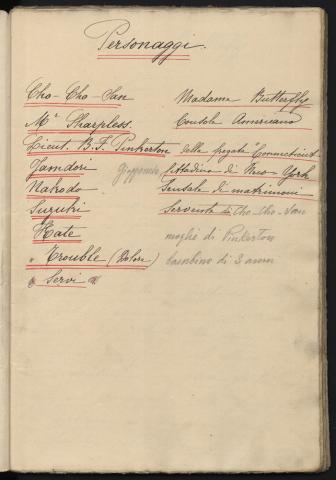 Personaggi.
Cho-Cho-San Madama Butterfly
Mr Sharpless. Console Americano
Lieut. B. F. Pinkerton della fregata Connecticut
Jamdori Giapponese, cittadino di New-York
Nakodo Sensale di matrimoni
Suzuki Servente di Cho-Cho-San
Kate moglie di Pinkerton
" Trouble (Dolore) bambino di 3 anni
" Servi "